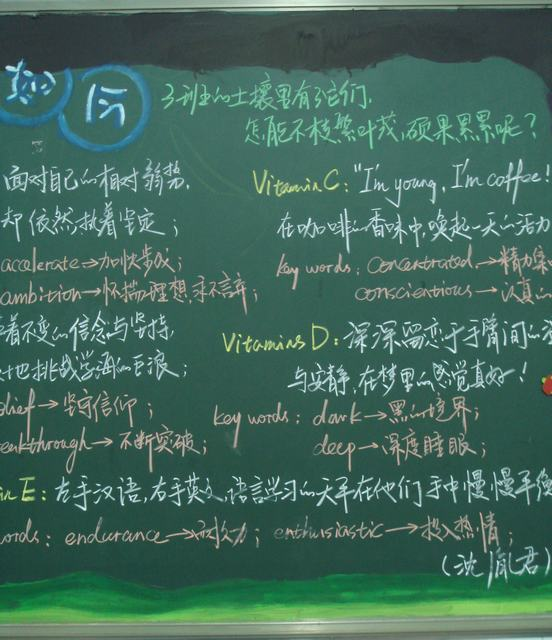 3班的土壤里有了它们,
怎能不枝繁叶茂,硕果累累呢?
面对自己的相对弱势,
却依然执着坚定;
accelerate→加快步伐;
ambition→怀揣理想,永不言弃;
着不变的信念与坚持,
地挑战学海的巨浪;
lief→坚守信仰;
eakthrough→不断突破;
Vitamin C: "I'm young, I'm coffee!
在咖啡的香味中,唤起一天的活力
key words: concentrated→精力集
conscientious→认真的
Vitamins D: 深深留恋于手臂间的
与安静,在梦里的感觉真好!
key words: dark→黑的境界;
deep→深度睡眠;
in E: 左手汉语,右手英文,语言学习的天平在他们手中慢慢平衡
words: endurance→耐久力; enthusiastic→投入热情;
(沈胤君)